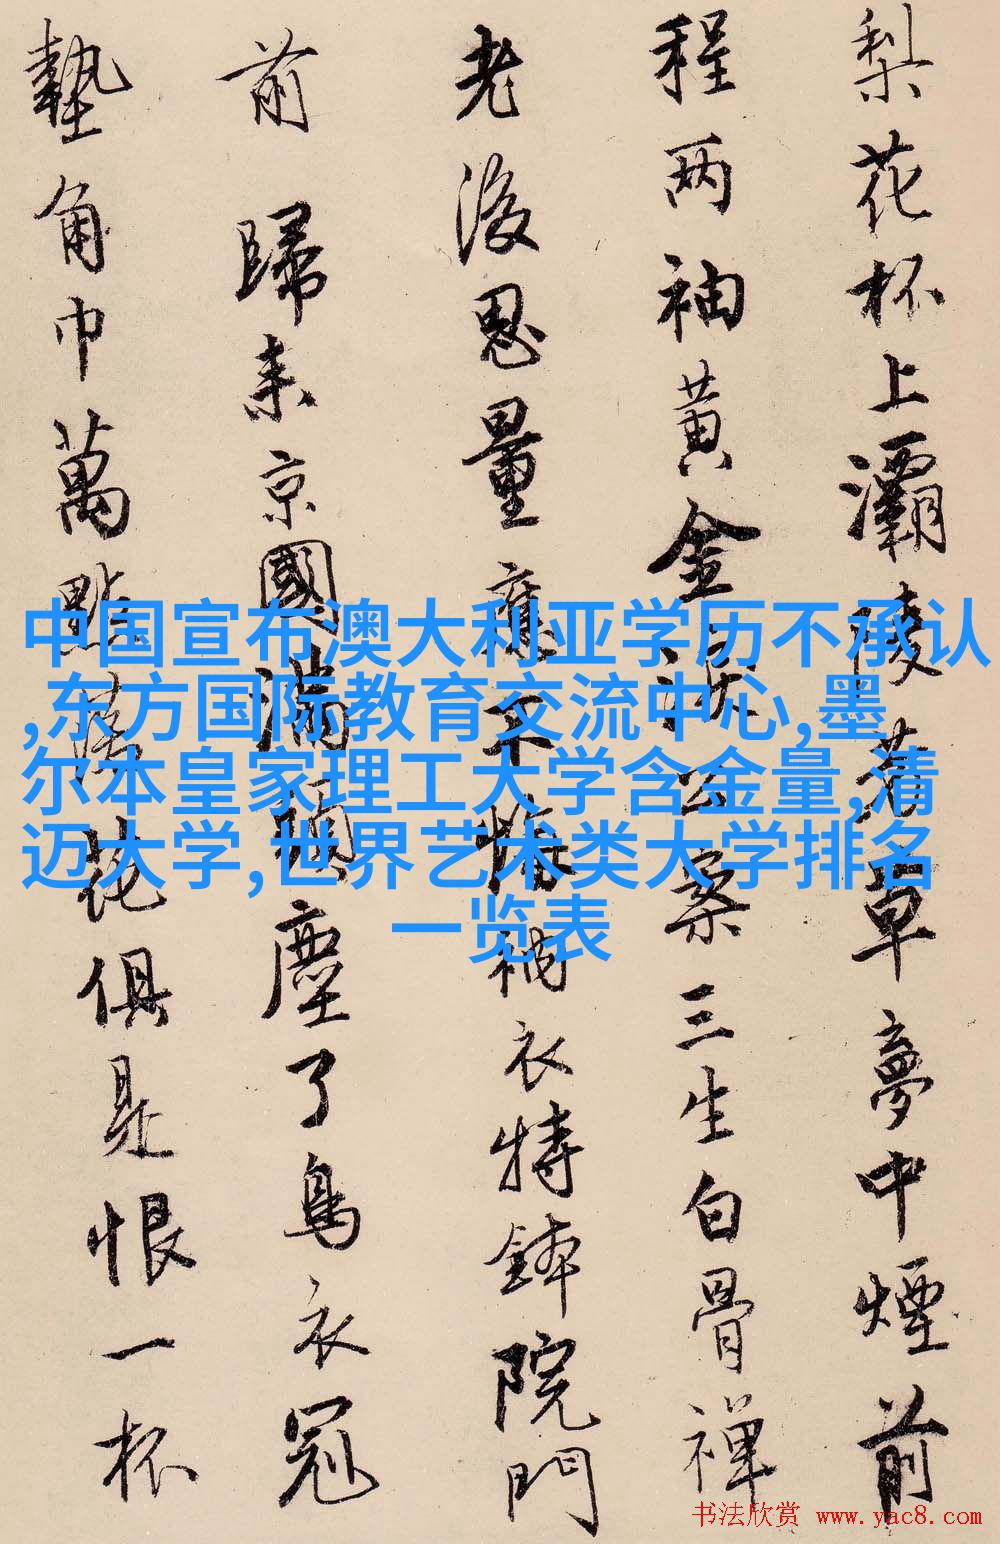 梨花杯上灞陵前草夢中煙前
程两袖黄金淚公案三生白骨禪
老後思量應不悔衲衣持鉢院門
前歸来京國滿頭塵了烏衣冠
墊角巾萬點落花俱是恨一杯
中国宣布澳大利亚学历不承认
,东方国际教育交流中心,墨
尔本皇家理工大学含金量,清
迈大学,世界艺术类大学排名
一览表
书法欣赏 www.yac8.com